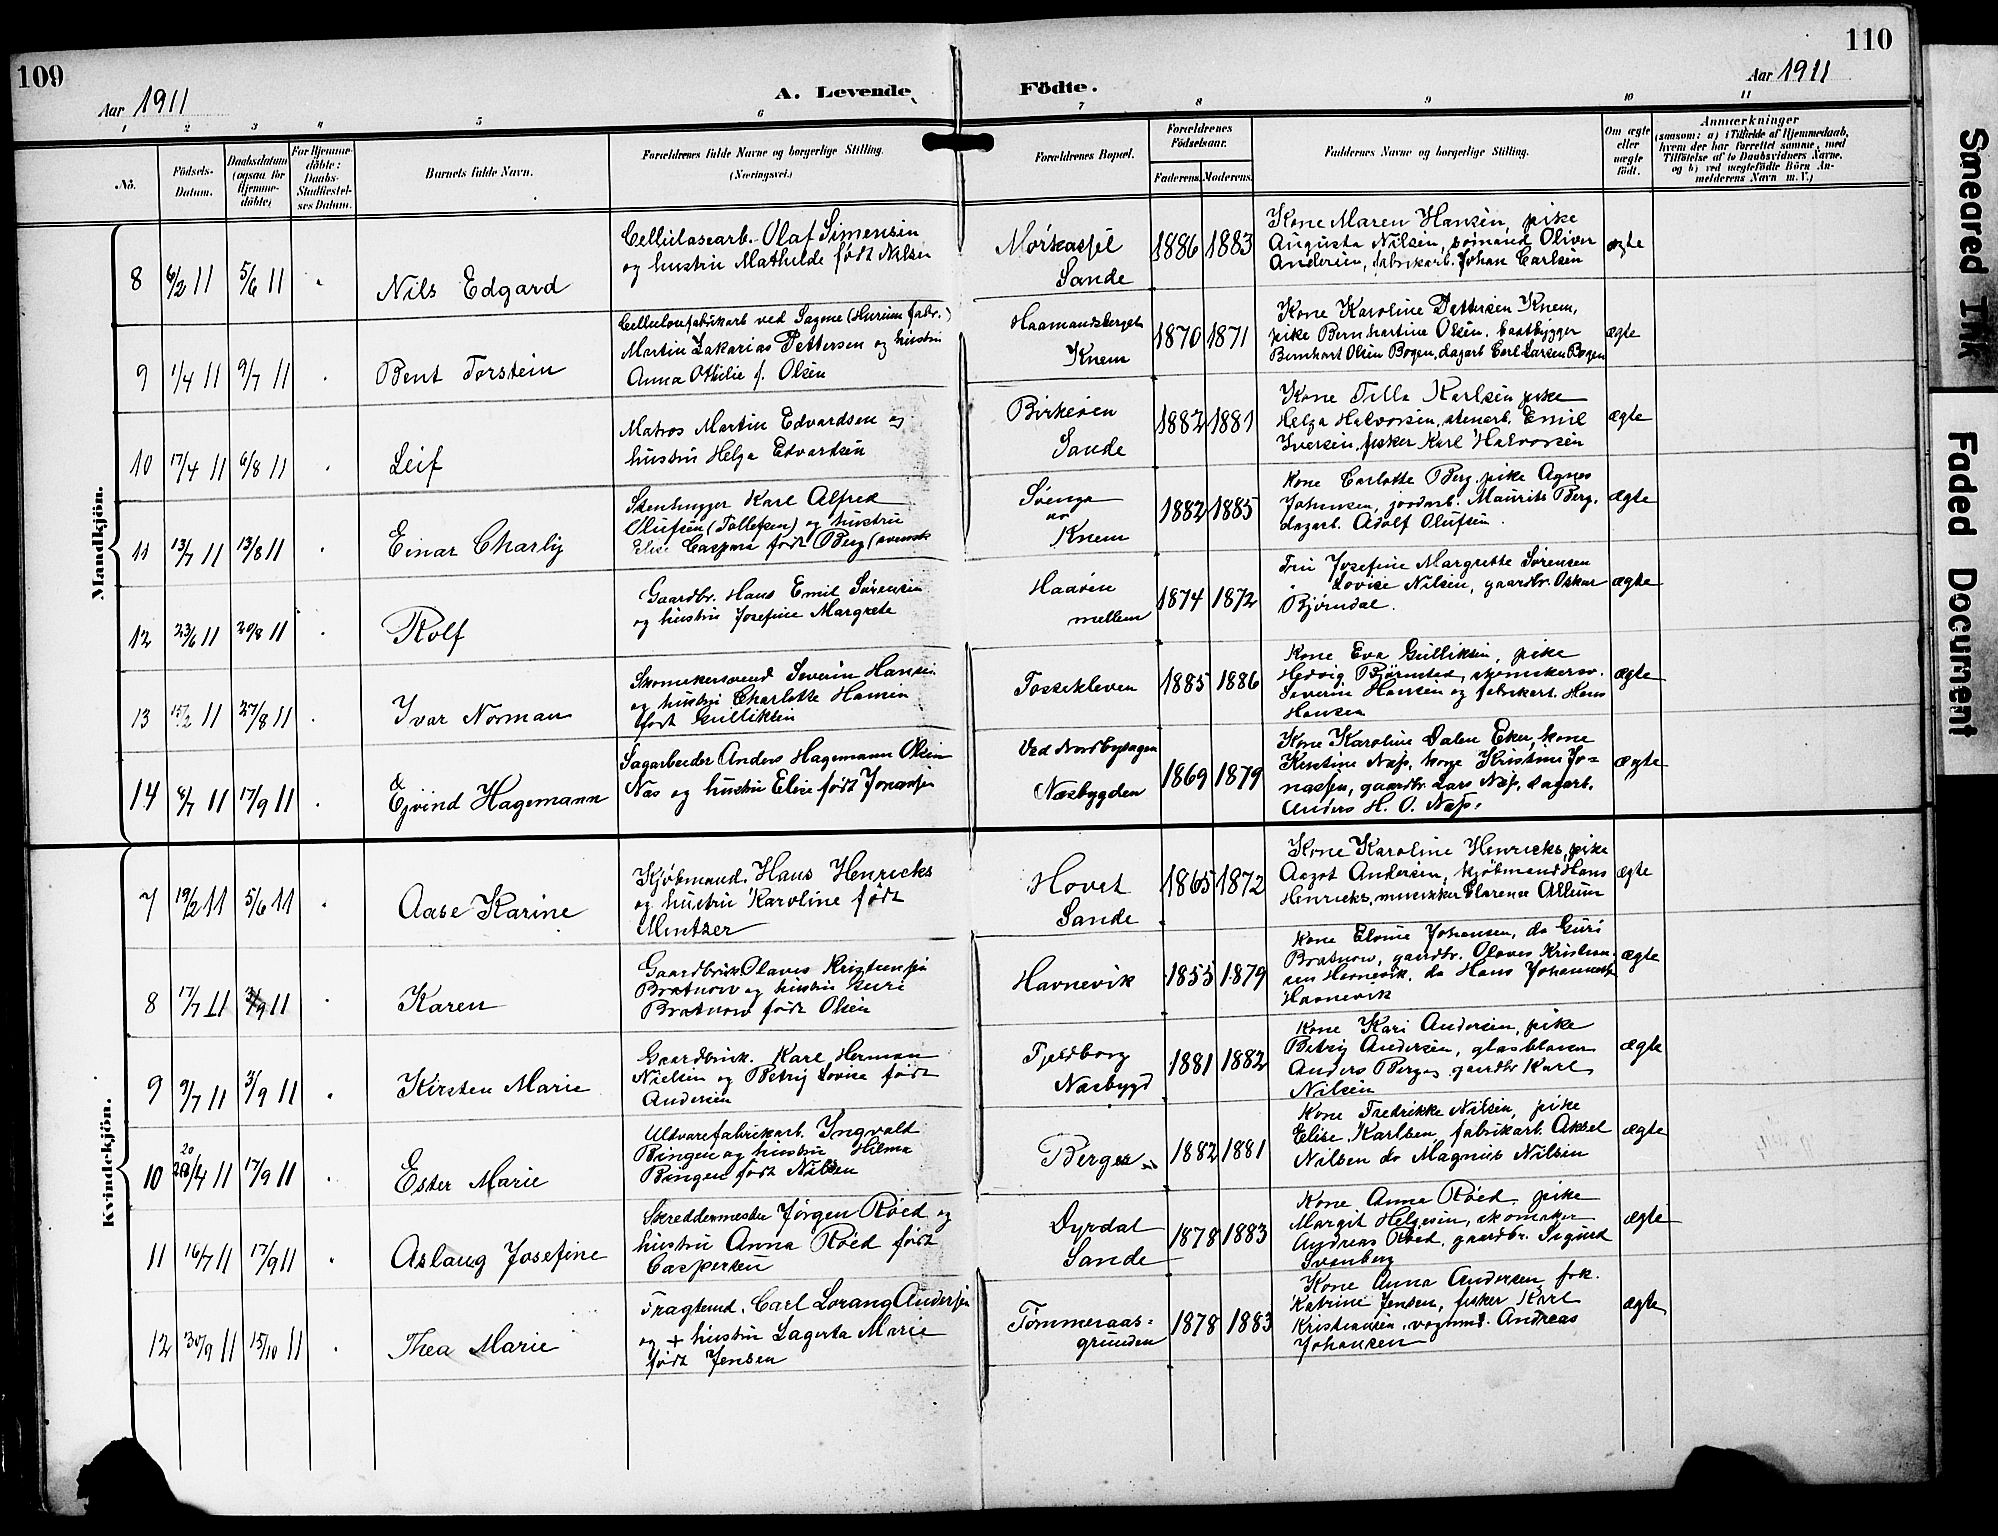 109
110
Aar 1911
A. Levende
Födte.
Aar 1911
1 2 3 4 5 6 7 8 9 10 11
No.
Födsels-
Datum.
Daabsdatum
(ogsaa for
Hjemme-
döbte)
For Hjemme-
döbte:
Daabs-
Stadfæstel-
ses Datum.
Barnets fulde Navn.
Forældrenes fulde Navne og borgerlige Stilling.
(Næringsvei.)
Forældrenes Bopæl.
Forældrenes
Födselsaar.
Faderens. Moderens.
Faddernes Navne og borgerlige Stilling.
Om ægte
eller
uægte
födt.
Anmærkninger
(saasom: a) i Tilfælde af Hjemmedaab,
hvem der har forrettet samme, med
Tilföielse af to Daabsvidners Navne,
og b) ved uægtefödte Börn An-
melderens Navn m. V.)
Mandkjön.
8 6/2 11 5/6 11 Nils Edgard
Cellulosearb. Olaf Simensen
og hustru Mathilde født Nilsen
Sande
1886 1883
Kone Maren Hansen, pike
Augusta Nilsen, sømand Oliver
Andersen, fabrikarb. Johan Carlsen
ægte
9 1/4 11 9/7 11 Bent Torstein
Cellulosefabrikarb ved Sagene (Hurum fabr.)
Martin Zakarias Pettersen og hustru
Anna Othilie f. Olsen
Haamandsberget
Knem
1870 1871
Kone Karoline Pettersen Knem,
pike Bernhartine Olsen, baatbygger
Bernhart Olsen Bogen, dagarb Carl Larsen Bogen
ægte
10 17/4 11 6/8 11 Leif
Matros Martin Edvardsen og
hustru Helga Edvardsen
Sande
1882 1881
Kone Tilla Karlsen pike
Helga Halvorsen, stenarb. Emil
Iversen, fisker Karl Halvorsen
ægte
11 13/7 11 13/8 11 Einar Charly
Stenhugger Karl Alfred
Olufsen (Tollefsen) og hustru
Elise Caspara født Berg (svensk
Knem
1882 1885
Kone Carlotte Berg, pike Agnes
Johansen, jordarb. Maurits Berg,
dagarb. Adolf Olufsen.
ægte
12 23/6 11 20/8 11 Rolf
Gaardbr. Hans Emil Sørensen
og hustru Josefine Margrete
Haaøen
mellem
1874 1872
Fru Josefine Margrethe Sørensen
" Lovise Nilsen, gaardbr. Oskar
Bjørndal.
ægte
13 15/2 11 27/8 11 Ivar Norman
Skomakersvend Severin Hansen
og hustru Charlotte Hansen
født Gulliksen
Tossekleven
1885 1886
Kone Eva Gulliksen, pike
Hedvig Bjørnstad, skomakersv.
Severin Hansen og fabrikarb. Hans
Hansen
ægte
14 8/7 11 17/9 11 Ejvind Hagemann
Sagarbeider Anders Hagemann Olsen
Næs og hustru Elise født Jonassen
Ved Nordbysagen
Næsbygden
1869 1879
Kone Karoline Dalen Eker, kone
Kirstine Næss, kone Kristine Jo=
nassen, gaardbr. Lars Næss, dagarb.
Anders H. O. Næss.
ægte
Kvindekjön.
7 19/2 11 5/6 11 Aase Karine
Kjøbmand Hans Henricks
og hustru Karoline født
Mentzer
Hovet
Sande
1865 1872
Kone Karoline Henricks, pike
Aagot Andersen, kjøbmand Hans
Henricks, musikker Clarence Allum
ægte
8 17/7 11 3/9 11 Karen
Gaardbruk Olaves Kristensen
Bratnow og hustru Guri
Bratnow født Olsen
Havnevik
1855 1879
Kone Elomie Johansen, do Guri
Bratnow, gaardbr. Olaves Kristian-
sen Havnevik, do Hans Johannesen
Havnevik
ægte
9 9/7 11 3/9 11 Kirsten Marie
Gaardbruk. Karl Herman
Nielsen og Petrij Lovise født
Andersen
Fjeldborg
Næsbygd
1881 1882
Kone Kari Andersen, pike
Petrij Andersen, glasblaaser
Anders Berge, gaardbr Karl
Nilsen
ægte
10 20/4 11 17/9 11 Ester Marie
Uldvarefabrikarb. Ingvald
Bingen og hustru Hilma
Bingen født Nilsen
1882 1881
Kone Fredrikke Nilsen, pike
Elise Karlsen, fabrikarb. Aksel
Nilsen do Magnus Nilsen
ægte
11 16/7 11 17/9 11 Aslaug Josefine
Skreddermester Jørgen Røed og
hustru Anna Røed født
Caspersen
Dyrdal
Sande
1878 1883
Kone Anna Røed, pike
Margit Helgesen, skomaker
Andreas Røed, gaardbr. Sigurd
Svenberg
ægte
12 30/9 11 15/10 11 Thea Marie
Fragtemd. Carl Lorang Andersen
og + hustru Lagerta Marie
født Jensen
Tømmeraas=
grunden
1878 1883
Kone Anna Andersen, frk.
Katrine Jensen, fisker Karl
Kristiansen, vognmd. Andreas
Johansen
ægte
Smeared Ink
Faded Document